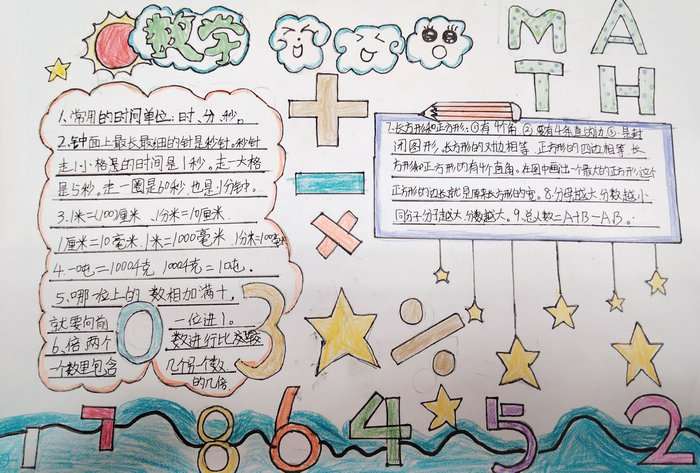 数学
MATH
1、常用的时间单位：时、分、秒。
2.钟面上最长最细的针是秒针。秒针
走1小格是的时间是1秒。走一大格
是5秒。走一圈是60秒也是1分钟。
3.1米=100厘米、1分米=10厘米
1厘米=10毫米.1米=1000毫米.1分米=100毫米
4.一吨=1000千克 1000千克=1吨.
5、哪一位上的 数相加满十，
就要向前 一位进1。
6、倍:两个 数进行比较
一个数里包含 几个另一个数
的几倍
7.长方形和正方形：①有4个角 ②要有4条直的边 ③是封
闭图形，长方形的对边相等、正方形的四边相等 长
方形和正方形的有4个直角。在图中画出一个最大的正方形,这个
正方形的边长就是原来长方形的宽。8.分母越大 分数越小
同分子分子越大分数越大。9、总人数=A+B-AB。
0 3
1 7 8 6 4 5 2